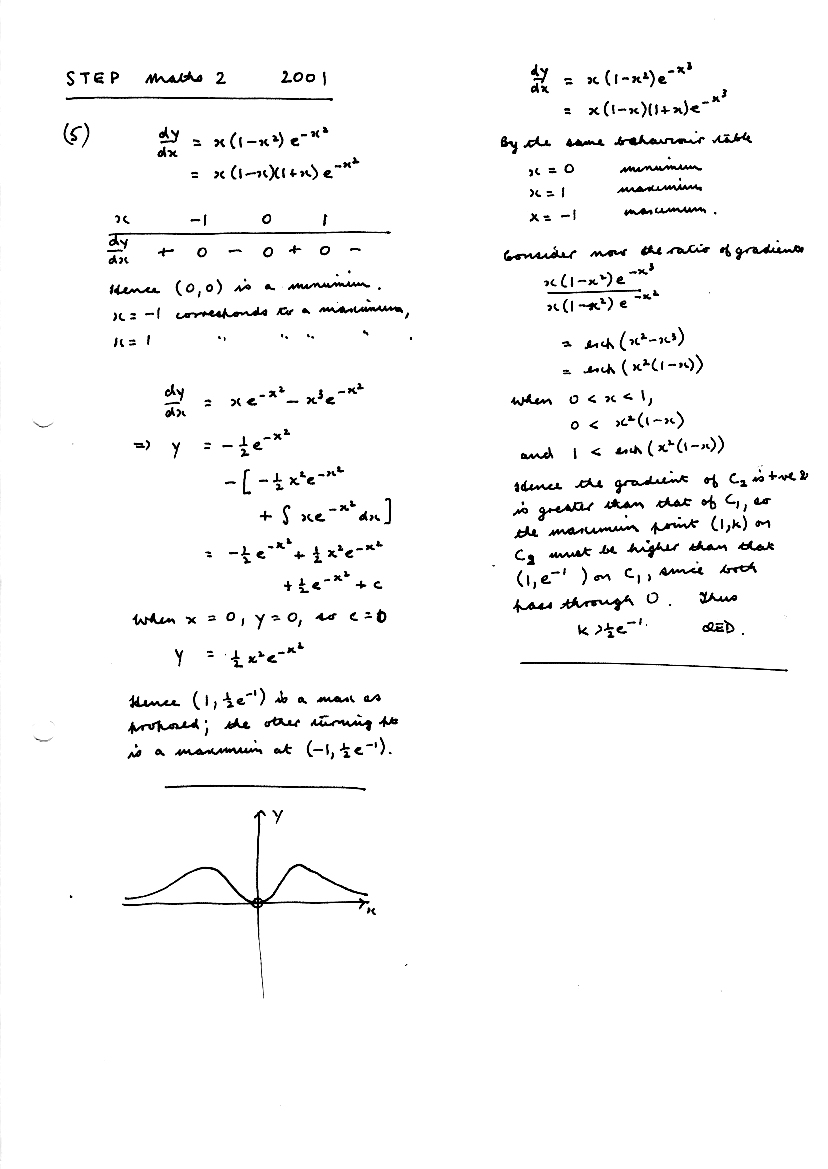 STEP Maths 2 2001
(5) dy/dx = x(1-x²) e^{-x²}
= x(1-x)(1+x) e^{-x²}
x -1 0 1
dy/dx + 0 - 0 + 0 -
Hence (0,0) is a minimum.
x = -1 corresponds to a maximum,
x = 1 " " " " .
dy/dx = xe^{-x²} - x³e^{-x²}
=> y = -½e^{-x²}
-[-½x²e^{-x²}
+ ∫ xe^{-x²}dx]
= -½e^{-x²} + ½x²e^{-x²}
+ ½e^{-x²} + c
When x = 0, y = 0, so c = 0
y = ½x²e^{-x²}
Hence (1, ½e⁻¹) is a max as
proposed; the other turning pt
is a maximum at (-1, ½e⁻¹).
y
x
dy/dx = x(1-x²)e^{-x³}
= x(1-x)(1+x)e^{-x³}
By the same behaviour table
x = 0 minimum
x = 1 maximum
x = -1 maximum.
Consider now the ratio of gradients
x(1-x²)e^{-x³}
x(1-x²)e^{-x²}
= exp(x²-x³)
= exp(x²(1-x))
When 0 < x < 1,
0 < x²(1-x)
and 1 < exp(x²(1-x))
Hence the gradient of C₂ is +ve &
is greater than that of C₁, so
the maximum point (1,k) on
C₂ must be higher than that
(1, e⁻¹ ) on C₁, since both
pass through O. Thus
k > ½e⁻¹. QED.